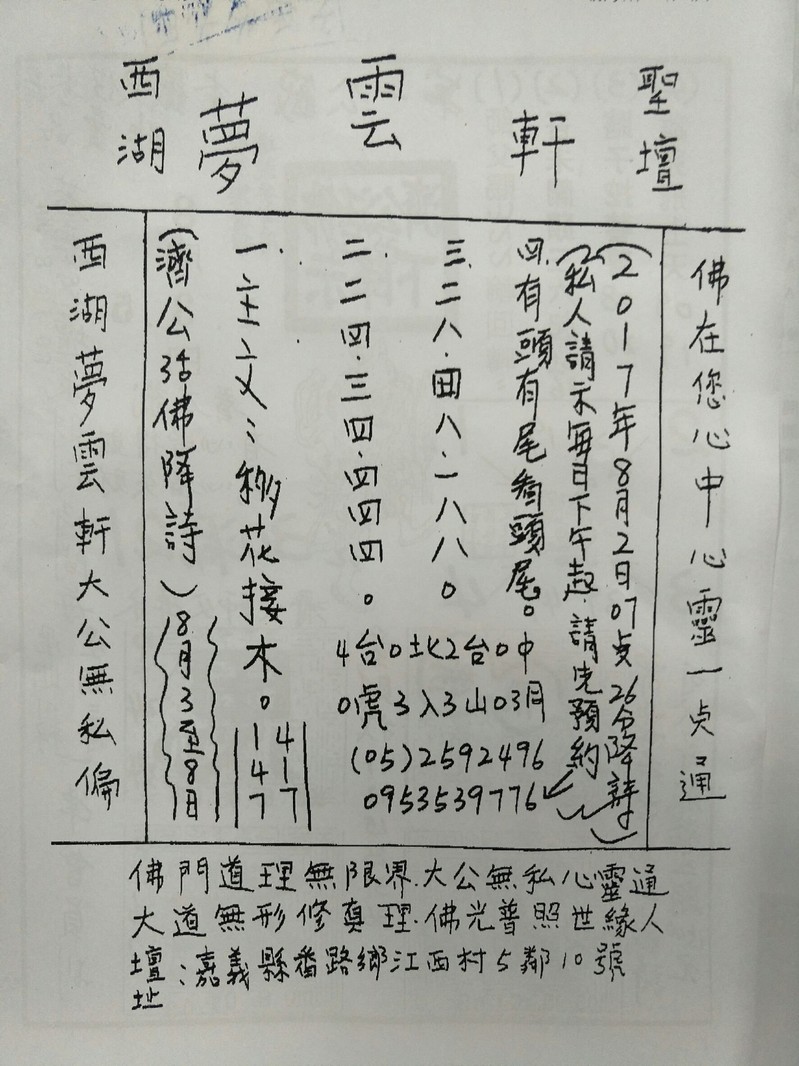 西湖夢雲軒聖壇
西湖夢雲軒大公無私偏
(濟公活佛降詩)8月3至8日
一.主文:移花接木。
14
41
77
二.二四.三四.四四四。
三.二八.田八.一八八。
四.有頭有尾看頭尾。
4台0北2台0中
0虎3入3山03月
(05)2592496
0953539776
(私人請示每日下午起.請先預約)
(2017年8月2日07点26分降詩)
佛在您心中心靈一点通
佛門道理無限界.大公無私心靈通
大道無形修真理.佛光普照世緣人
壇址:嘉義縣番路鄉江西村5鄰10號